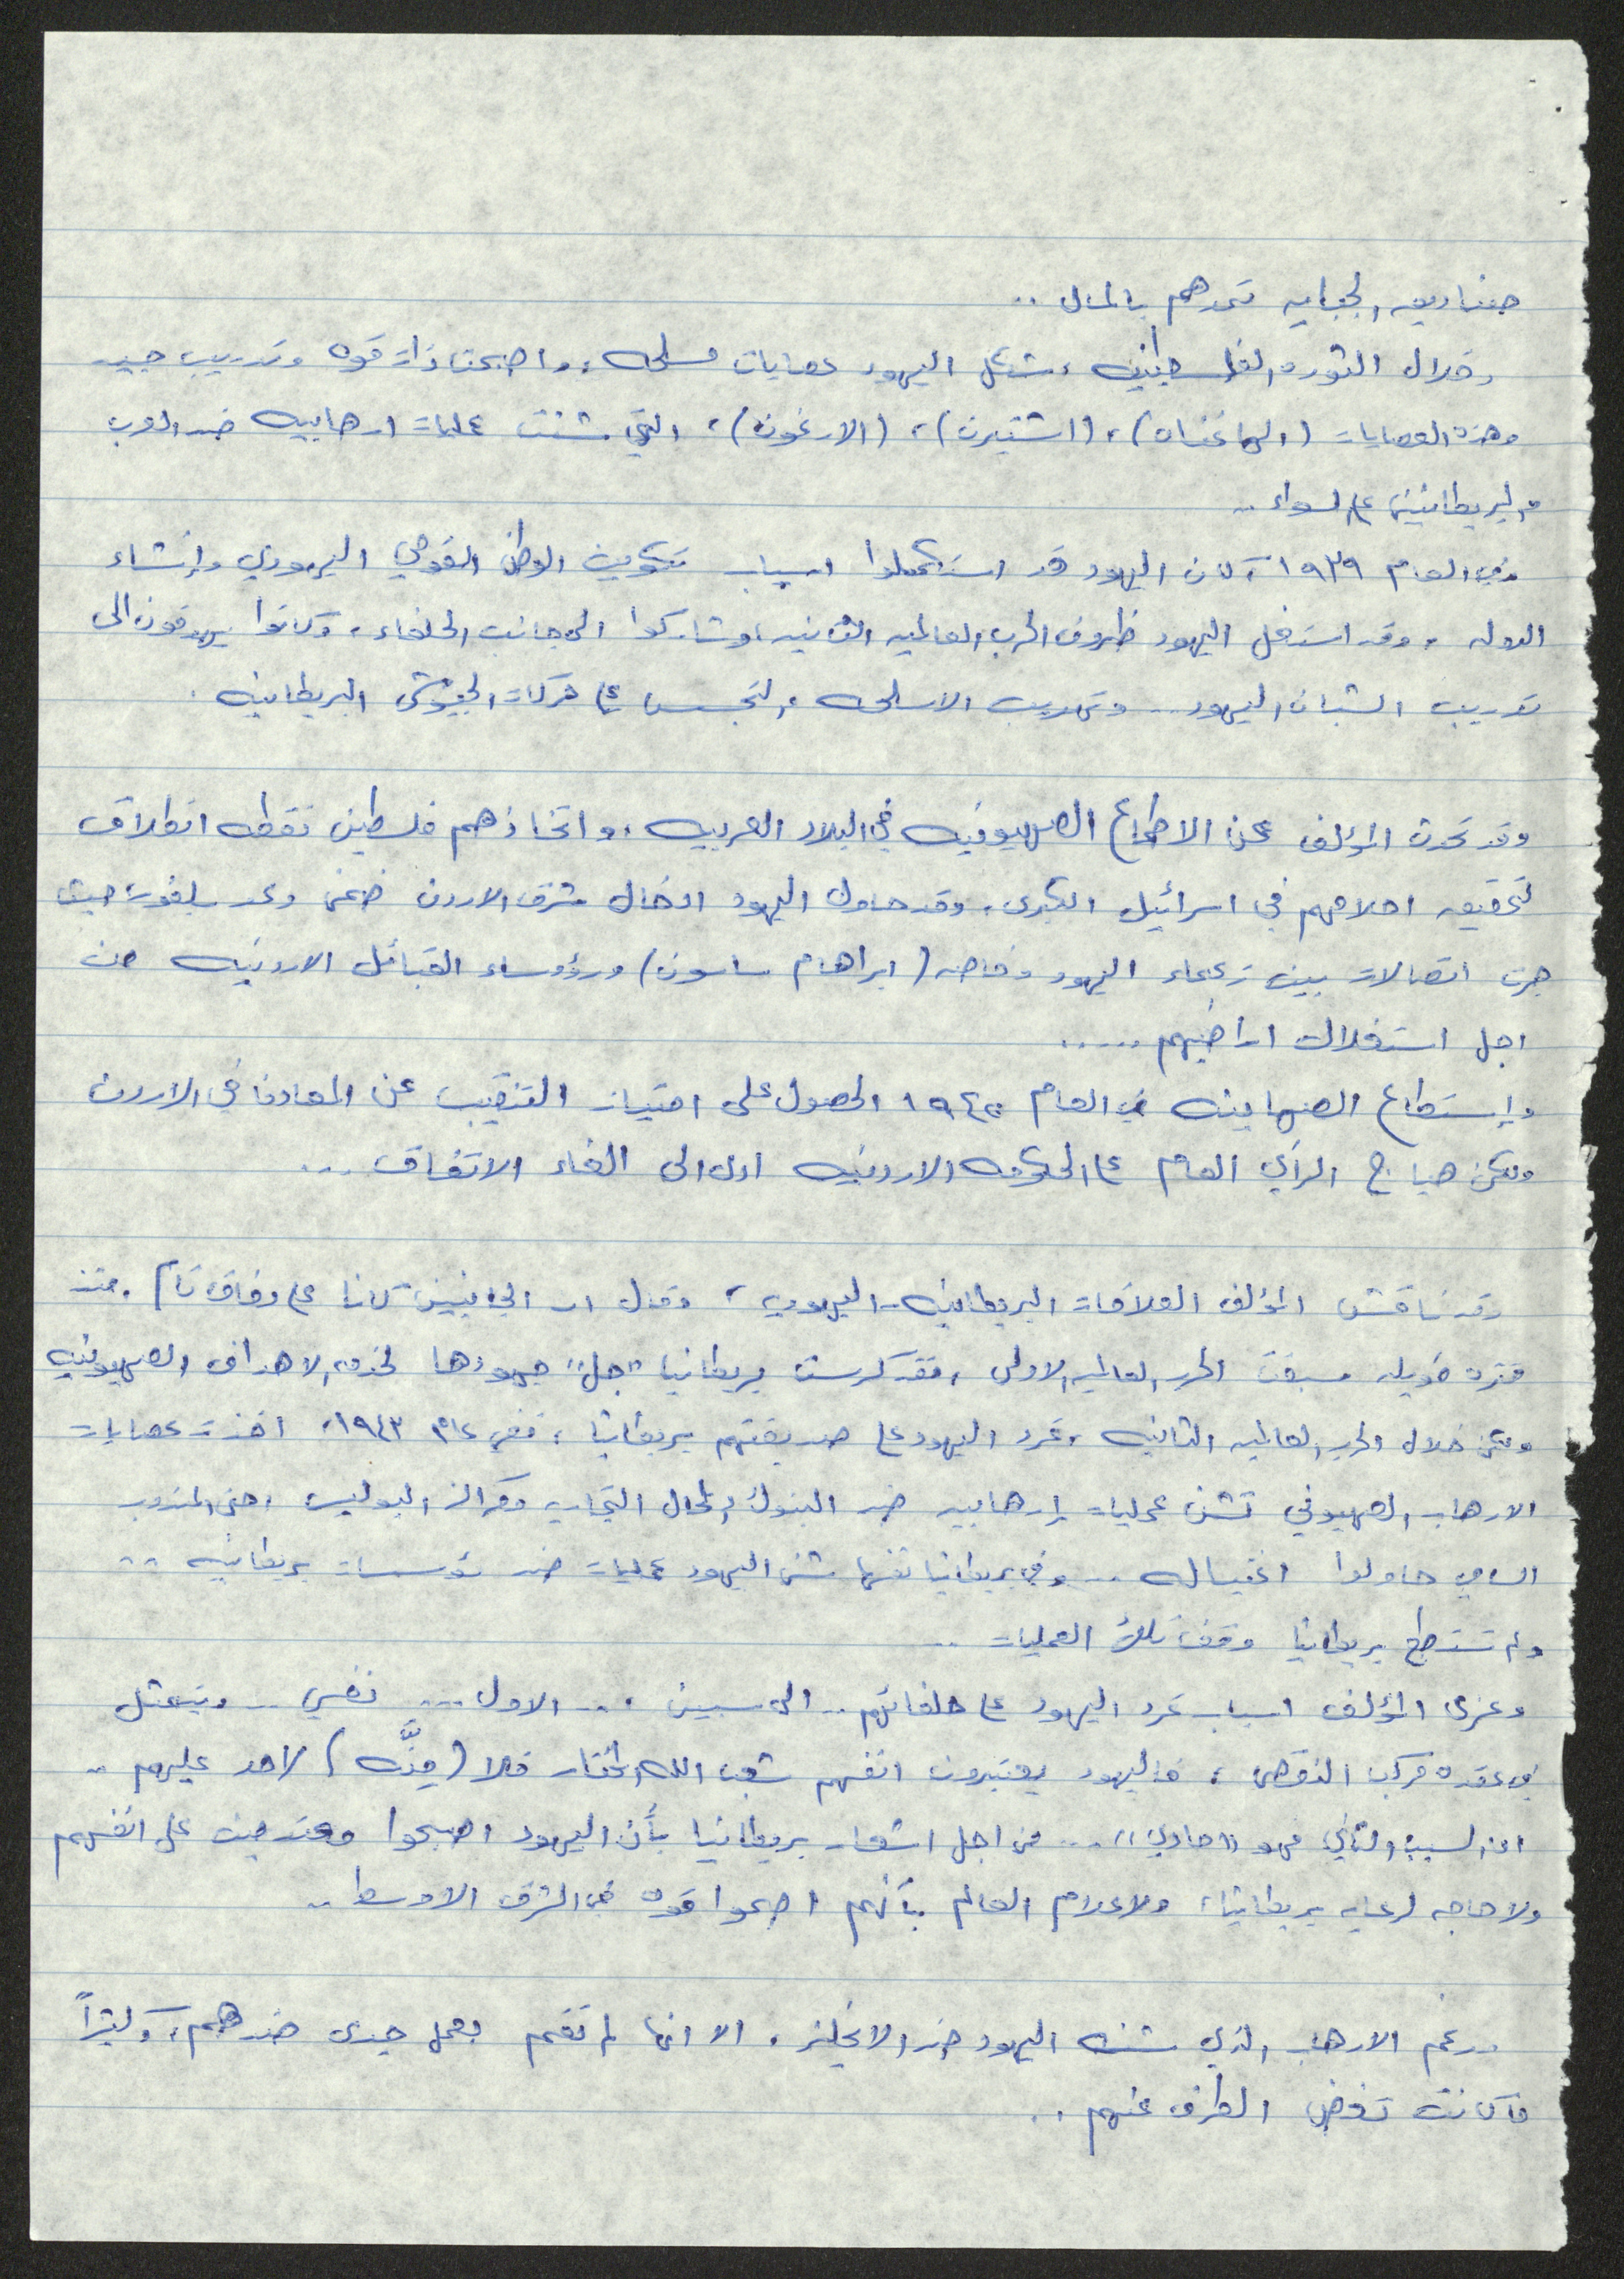 صناديق الجبايه تمدهم بالمال ..
وخلال الثوره الفلسطينيه ، شكل اليهود عصابات مسلحه ، واصبحت ذات قوه وتدريب جيد
وهذه العصابات (الهاغناه) ، (اشتيرن) ، (الارغون) ، التي شنت عمليات ارهابيه ضد العرب
والبريطانيين على السواء ..
وفي العام ١٩٣٩ كان اليهود قد استكملوا اسباب تكوين الوطن القومي اليهودي وإنشاء
الدوله . وقد استغل اليهود ظروف الحرب العالميه الثانيه ، وشاركوا الى جانب الحلفاء ، وكانوا يهدفون الى
تدريب الشبان اليهود .. وتهريب الاسلحه والتجسس على حركات الجيوش البريطانيه .
وقد تحدث المؤلف عن الاطماع الصهيونيه في البلاد العربيه ، واتخاذهم فلسطين نقطه انطلاق
لتحقيق احلامهم في اسرائيل الكبرى . وقد حاول اليهود ادخال شرق الاردن ضمن وعد بلفور حيث
جرت اتصالات بين زعماء اليهود وخاصه (ابراهام ساسون) ورؤوساء القبائل الاردنيه من
اجل استغلال اراضيهم .....
وإستطاع الصهاينه في العام الحصول على امتياز التنقيب عن المعادن في الاردن
ولكن هياج الرأي العام على الحكومه الاردنيه ادى الى الغاء الاتفاق ...
وقد ناقش المؤلف العلاقات البريطانيه - اليهوديه ، وقال ان الجانبين كانا على وفاق تام . منذ
فتره طويله سبقت الحرب العالميه الاولى ، فقد كرست بريطانيا "جل" جهودها لخدمه الاهداف الصهيونيه
ولكن خلال الحرب العالميه الثانيه ، تمرد اليهود على صديقتهم بريطانيا ، ففي عام ١٩٤٣ ، اخذت عصابات
الارهاب الصهيوني تشن عمليات إرهابيه ضد البنوك والمحال التجاريه ومراكز البوليس ، حتى المندوب
السامي حاولوا اغتياله .. وفي بريطانيا نفسها شن اليهود عمليات ضد مؤسسات بريطانيه ..
ولم تستطع بريطانيا وقف تلك العمليات ..
وعزى المؤلف اسباب تمرد اليهود على حلفائهم .. الى سببين ... الاول ... نفسي .. ويتمثل
في عقده مركب النقص ، فاليهود يعتبرون انفسهم شعب الله المختار فلا (مِنَّه) لاحد عليهم ..
اما السبب الثاني فهو "مادي" ... من اجل اشعار بريطانيا بأن اليهود اصبحوا معتمدين على انفسهم
ولا حاجه لرعايه بريطانيا ، ولاعلام العالم بأنهم اصبحوا قوه في الشرق الاوسط ..
ورغم الارهاب الذي شنه اليهود ضد الانجليز . الا انها لم تقم بعمل جدى ضدهم ، وكثيراً
ما كانت تغض الطرف عنهم ..